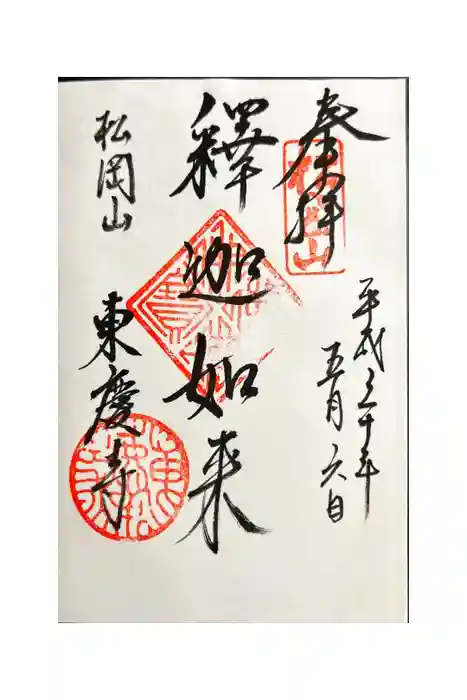 奉拝
松岡山
平成三十年
五月六日
釋迦如来
松岡山
東慶寺